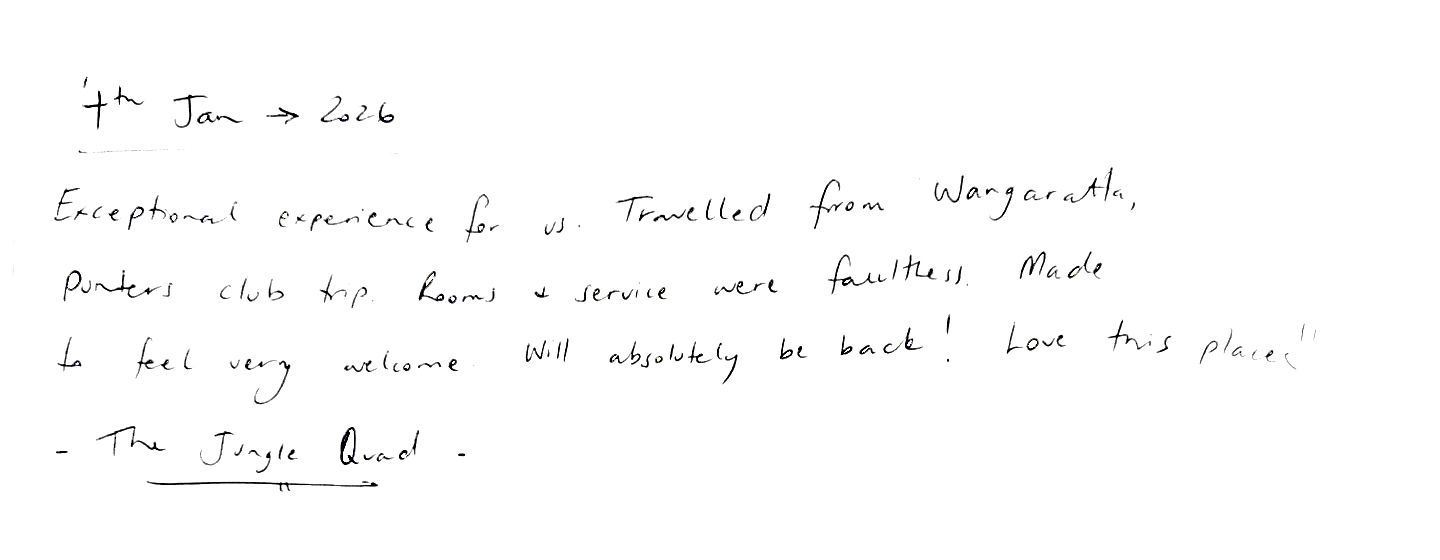 4th Jan → 2026
Exceptional experience for us. Travelled from Wangaratta,
Punters club trip. Rooms & service were faultless. Made
to feel very welcome. Will absolutely be back! Love this place"
- The Jungle Quad -